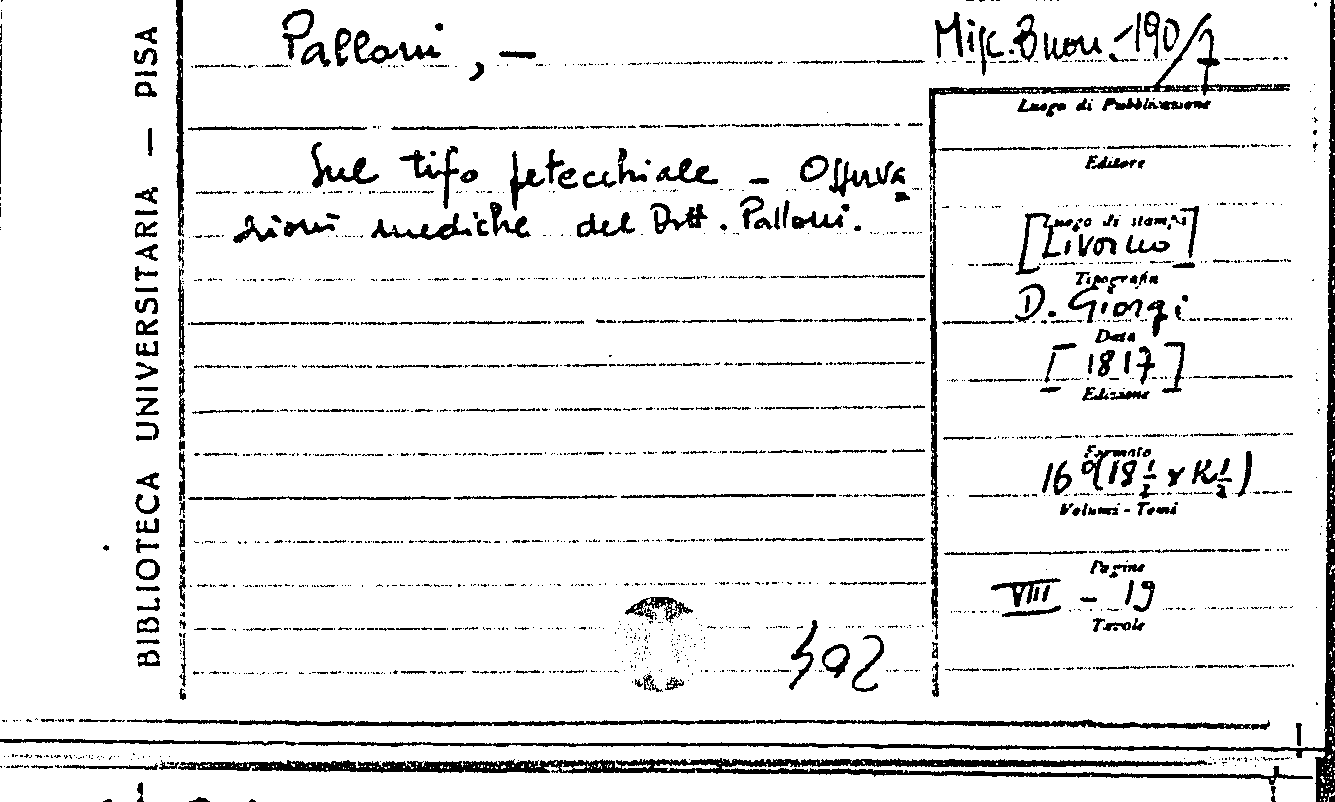 BIBLIOTECA UNIVERSITARIA — PISA
Palloni, —
Misc. Buon. 190/7
Sul tifo petecchiale - Osserva
zioni mediche del Dott. Palloni.
Luogo di Pubblicazione
Editore
Luogo di stampa
[Livorno]
Tipografia
D. Giorgi
Data
[1817]
Edizione
Formato
16°(18½ x
Volumi - Tomi
Pagine
VIII - 19
Tavole